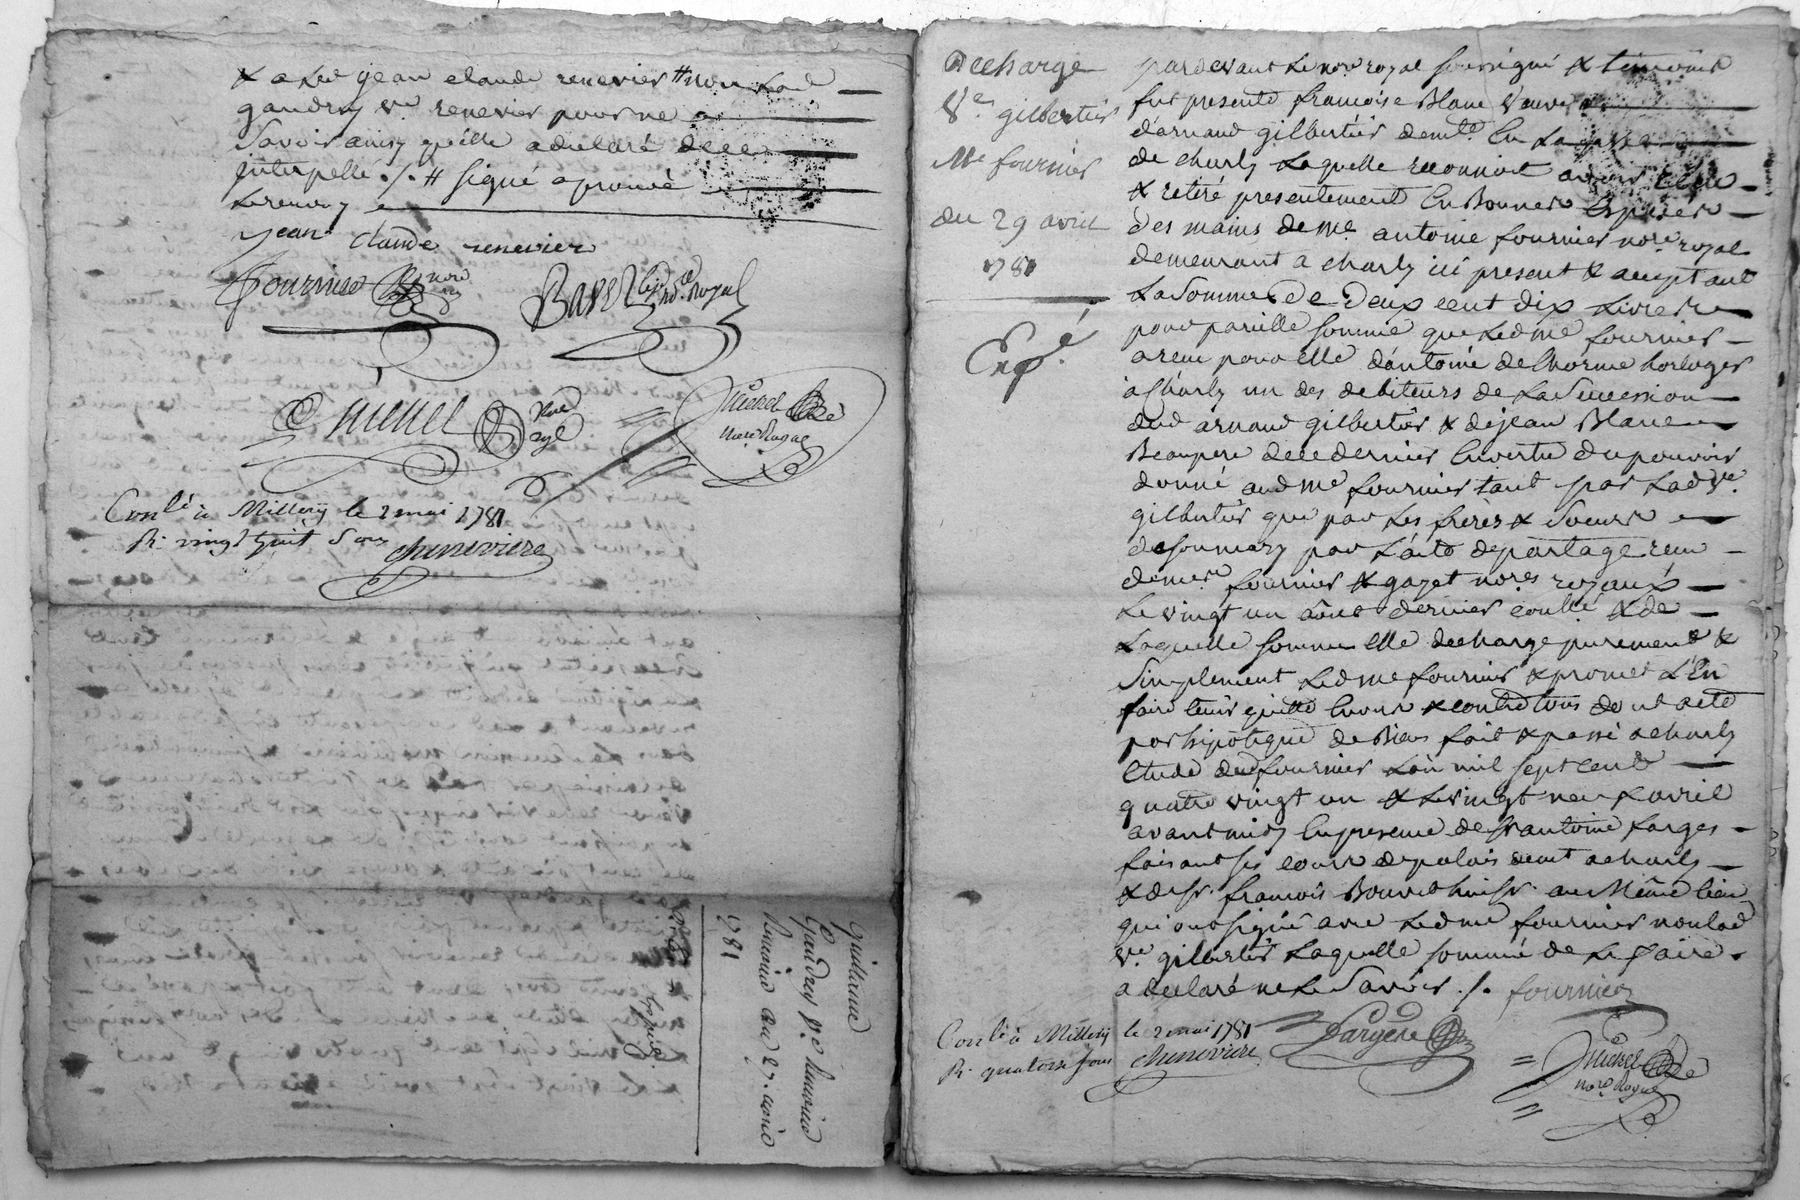 & aled jean claude renevier # non lad
gaudry ve renevier pour ne
Savoir ainsy quelle a declaré de ce
Interpellé ./. # signé aprouvé
Le renvoy
jean claude renevier
fournier nore
Bayet nore Royal
Michel nore Royal
Conlé à Millery le 2 mai 1781
R. vingt huit Sous cheneviere
quittance
Gaudry Ve
du 27. avril
1781
Expédié
Decharge
Ve gilbertier
Me fournier
du 29 avril
1781
Expé.
pardevant Le nore royal soussigné & temoins
fut presente francoise Blanc veuve
d'arnaud gilbertier demte En La
de charly Laquelle reconnoit avoir
& retiré presentement En Bonnes Especes
des mains de me antoine fournier nore royal
demeurant a charly ici present & acceptant
La Somme De Deux cent dix Livres
pour pareille somme que led me fournier
a recu pour elle d'antoine delhorme horloger
à charly un des debiteurs de La Succession
dud arnaud gilbertier & de jean Blanc
Beaupere de ce dernier En vertu du pouvoir
donné aud me fournier tant par Lad ve
gilbertier que par Les freres & Soeurs
de son mary par L'acte de partage recu
de mes fournier & gayet nores royaux
Le vingt un aout dernier controllé & de
Laquelle somme elle decharge purement &
Simplement Led me fournier & promet L'En
faire tenir quitte Envers & contre tous dont acte
par hipoteque de Biens fait & passé a charly
Etude dud fournier L'an mil sept cent
quatre vingt un & Le vingt neuf avril
avant midy En presence de sr antoine Larges
faisant ses cours de palais demt a charly
& de sr. francois Bouvet huissr. au Même Lieu
qui ont signé avec Led me fournier non lad
ve gilbertier Laquelle sommé de Le faire
a declaré ne Le Savoir ./. fournier
Conlé à Millery le 2 mai 1781
R. quatorze sous cheneviere
Michel
nore Royal